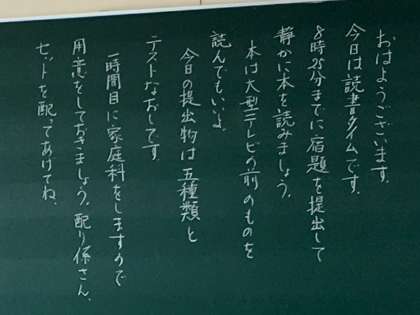 おはようございます。
今日は読書タイムです。
8時25分までに宿題を提出して
静かに本を読みましょう。
本は大型テレビの前のものを
読んでもいいよ。
今日の提出物は五種類と
テストなおしです。
一時間目に家庭科をしますので
用意をしておきましょう。配り係さん、
セットを配ってあげてね。